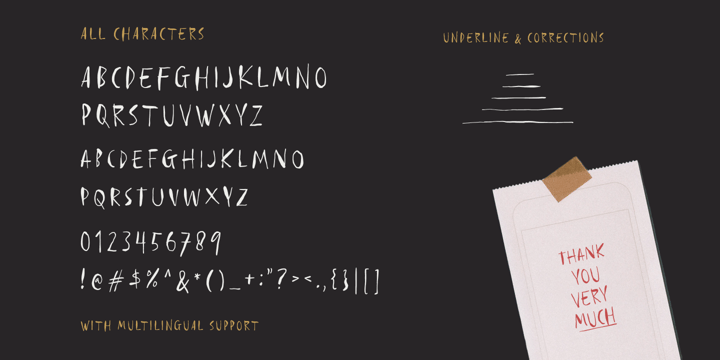 ALL CHARACTERS
ABCDEFGHIJKLMNO
PQRSTUVWXYZ
ABCDEFGHIJKLMNO
PQRSTUVWXYZ
0123456789
!@#$%^&*()_+:"?><.,{}|[]
WITH MULTILINGUAL SUPPORT
UNDERLINE & CORRECTIONS
THANK
YOU
VERY
MUCH